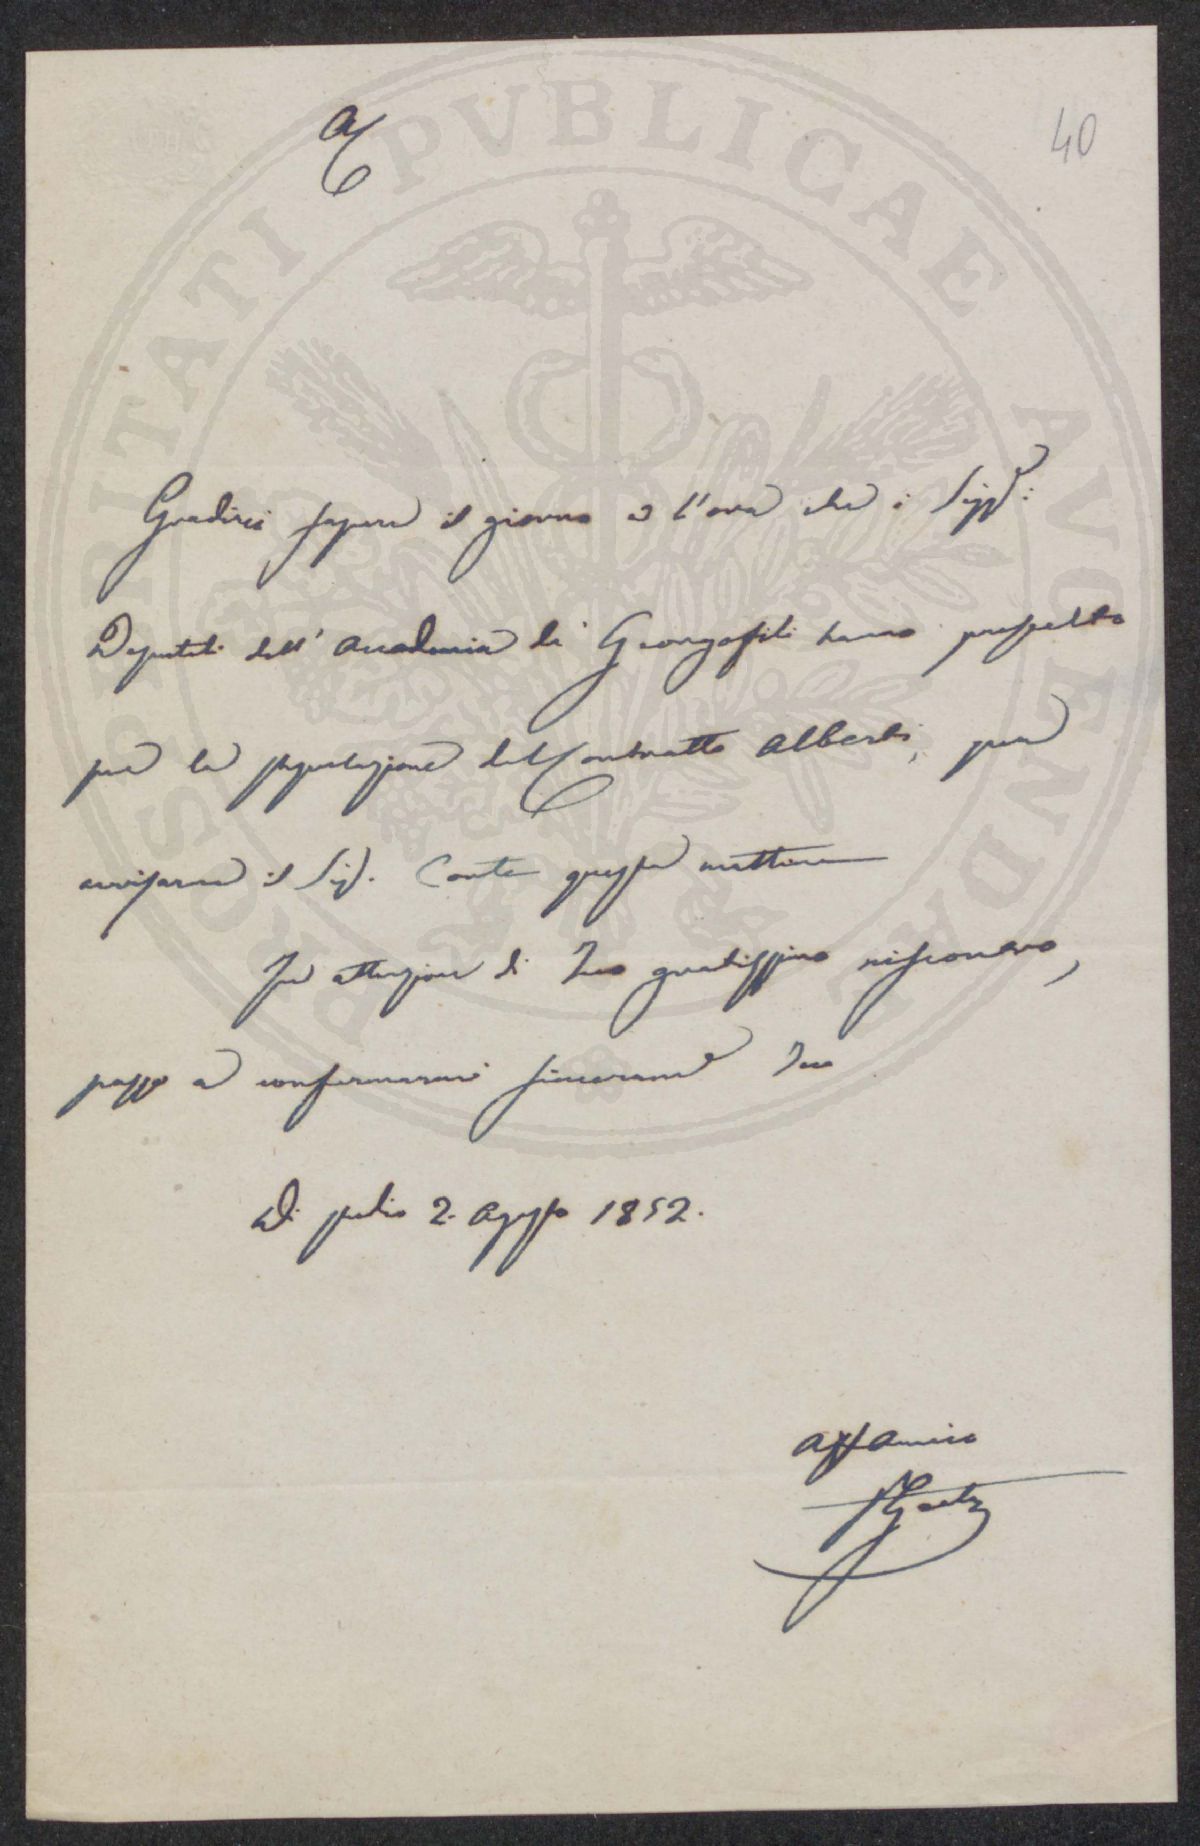 40
PROSPERITATI PVBLICAE AVGENDAE
Gradirei sapere il giorno e l'ora che i Sigg.ri
Deputati dell' Accademia dei Georgofili hanno prescelto
per la stipulazione del Contratto Alberti, per
avvisarne il Sig. Conte questa mattina
In attenzione di Suo gradissimo riscontro,
passo a confermarmi sincerame Suo
Di studio 2. Agosto 1852.
Aff Amico